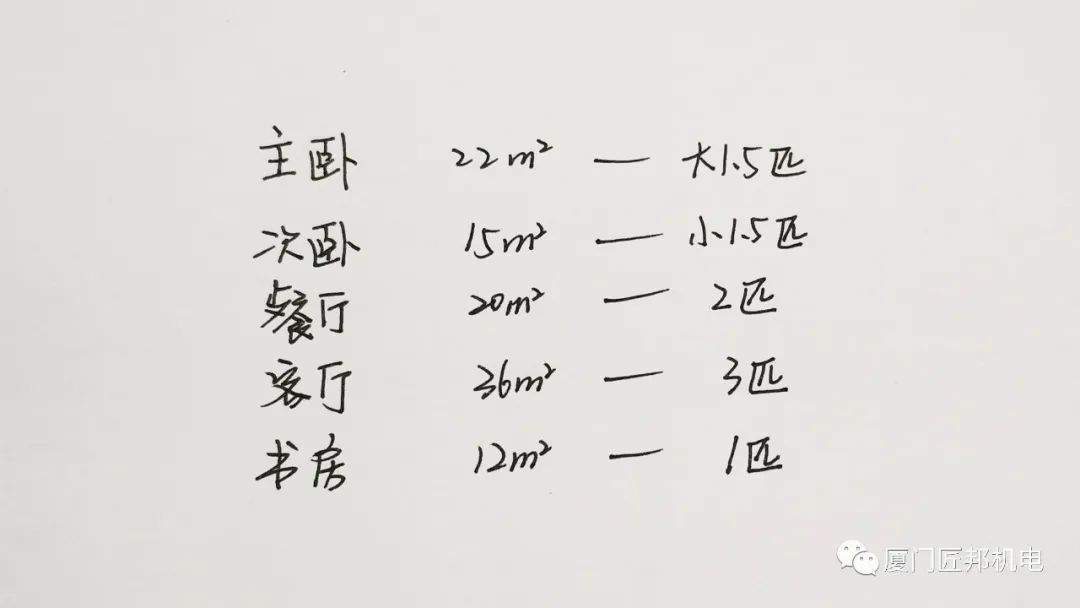 主卧 22m² — 大1.5匹
次卧 15m² — 小1.5匹
餐厅 20m² — 2匹
客厅 36m² — 3匹
书房 12m² — 1匹
厦门匠邦机电